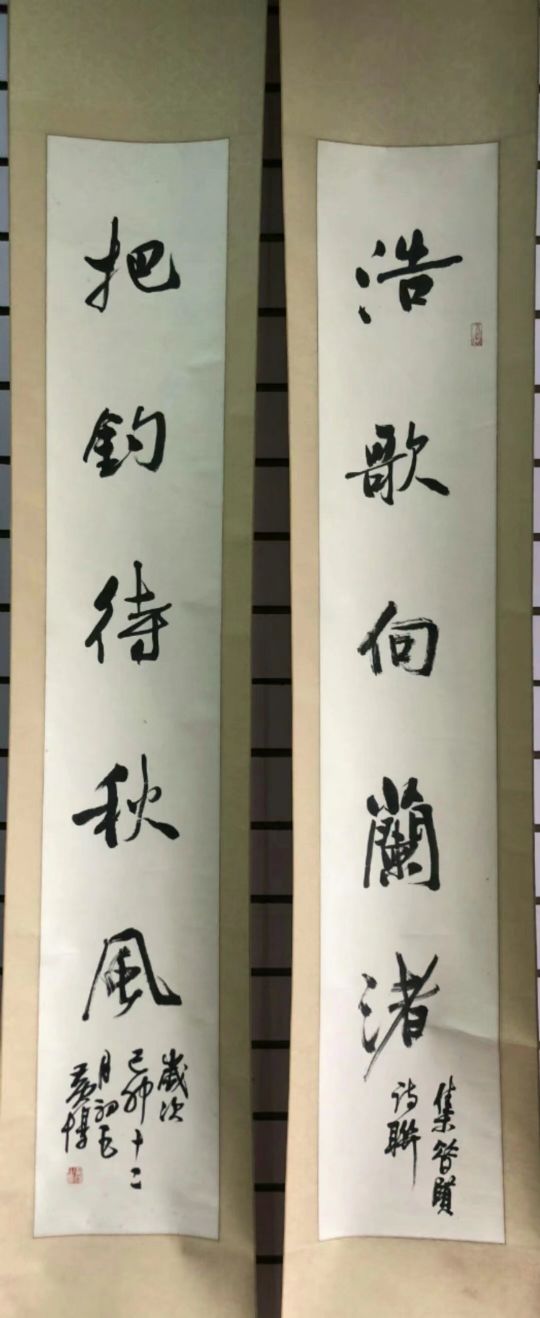 浩歌向蘭渚
集晉賢
詩聯
把鈞待秋風
歲次
己卯十二
月初五
黃惇